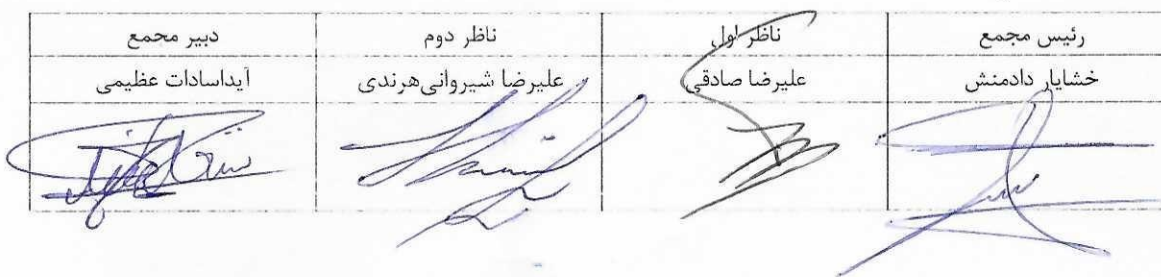 رئیس مجمع ناظر اول ناظر دوم دبیر مجمع
خشایار دادمنش علیرضا صادقی علیرضا شیروانی‌هرندی آیداسادات عظیمی